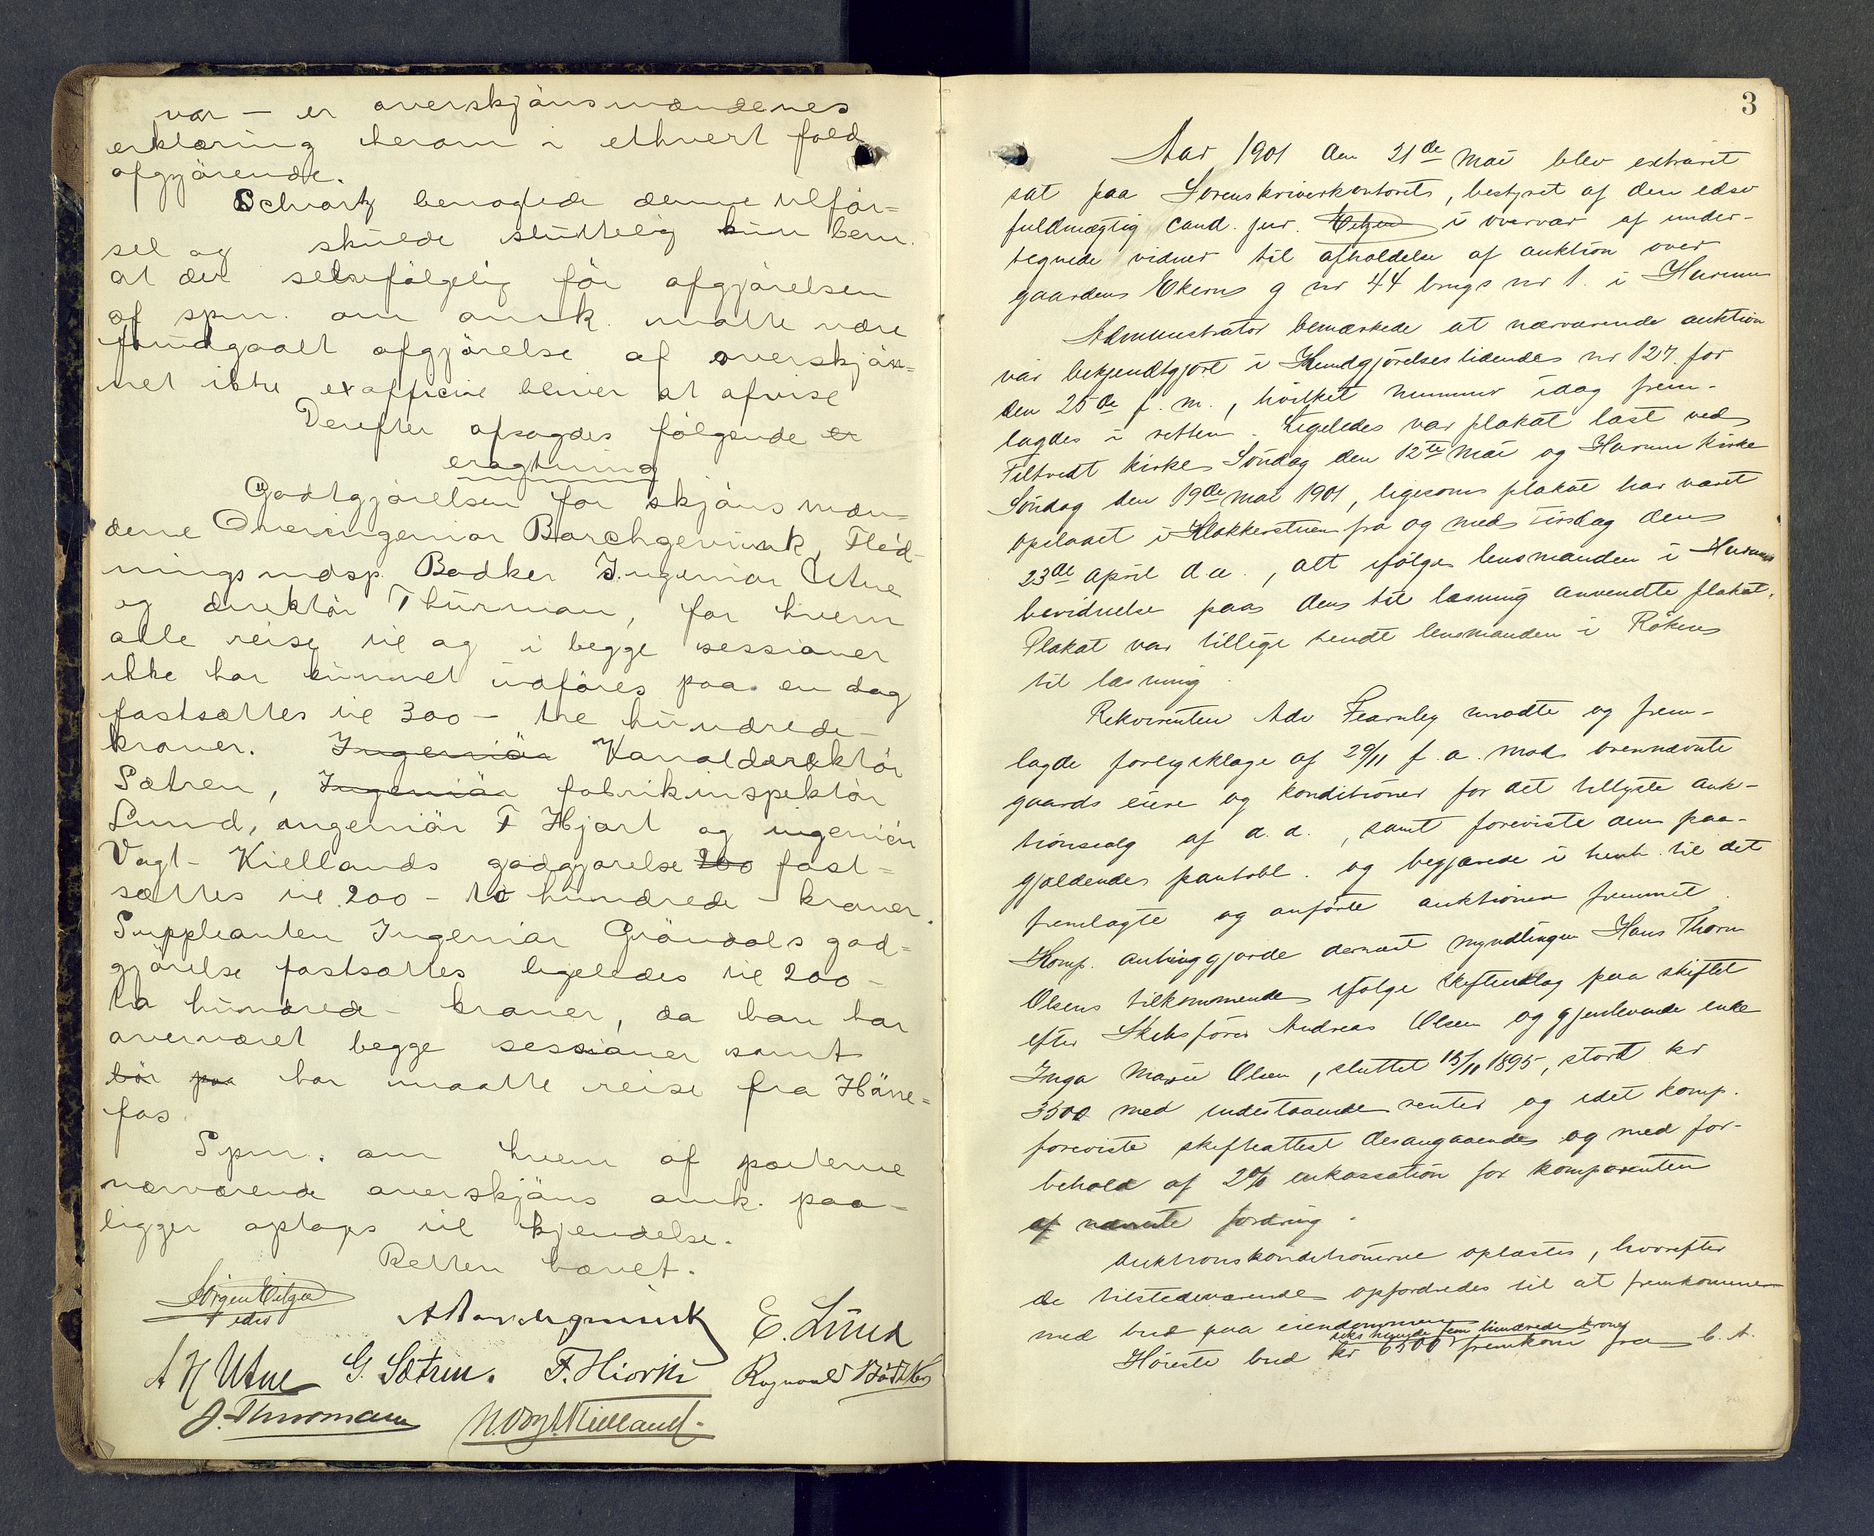 var – er overskjönsmændenes
erklæring herom i ethvert fald
afgjörende.
Schvartz benægtede denne tilför=
sel og skulde sluttelig kun bem.
at det selvfölgelig för afgjörelsen
af spm. om omk. maatte være
fundgaalt afgjörelse af overskjön=
net ikke exofficie bliver at afvise
Derefter afsagdes fölgende er
eragtning
Godtgjörelsen for skjönsmæn-
dene Overingeniör Borchgrevink, Flöd-
ningsindsp. Bödker Ingeniör Utne
og direktör Thürman, for hvem
alle reise til og i begge sessioner
ikke har kunnet udföres paa en dag
fastsættes til 300 – tre hundrede –
kroner. Ingeniör Kanaldirektör
Sætren, Ingeniör fabrikinspektör
Lund, ingeniör F Hjort og ingeniör
Vogt-Kiellands godgjörelse 200 fast=
sættes til 200 – to hundrede – kroner.
Suppleanten Ingeniör Gröndals god=
gjörelse fastsættes ligeledes til 200 –
to hundrede – kroner, da han har
overværet begge sessioner samt
bör paa har maatte reise fra Höne=
fos.
Spm. om hvem af parterne
nærværende overskjöns omk. paa=
ligger optages til kjendelse.
Retten hævet.
Jörgen Eitzen
edsv
A Borchgrevink
E. Lund
A N Utne G. Sætren. F. Hiorth Ragnvald Bödtker
J. Thurmann N. Vogt Kielland.
3
Aar 1901 den 21de Mai blev extraret
sat paa Sorenskriverkontoret, bestyret af den edsv
fuldmægtig cand. jur. Eitzen i overvær af under-
tegnede vidner til afholdelse af auktion over
gaarden Ekern g nr 44 brugs nr 1. i Hurum
Administrator bemærkede at nærværende auktion
var bekjendtgjort i Kundgjörelsestidende nr 127 for
den 25de f. m., hvilket nummer idag frem-
lagdes i retten. Ligeledes var plakat læst ved
Filtvedt kirke Söndag den 12te Mai og Hurum kirke
Söndag den 19de mai 1901, ligesom plakat har været
opslaaet i Klokkerstuen fra og med tirsdag den
23de april d.a., alt ifölge lensmanden i Hurums
bevidnelse paa den til læsning anvendte plakat.
Plakat var tillige sendt lensmanden i Röken
til læsning.
Rekvirenten Adv Fearnley mödte og frem-
lagde forligsklage af 29/11 f. a. mod ovennævnte
gaards eiere og konditioner for det tillyste auk-
tionsalg af d.d., samt foreviste den paa-
gjældende pantobl. og begjærede i henh. til det
fremlagte og anförte auktionen fremmet.
Komp. anhinggjorde dernæst myndlingen Hans Thorv
Olsens tilkommende ifölge skifteudlæg paa skiftet
efter Skibsförer Andreas Olsen og gjenlevende enke
Inga Marie Olsen, sluttet 15/11 1895, stort kr
3500 med indestaaende renter og idet komp.
foreviste skifteattest desangaaende og med for-
behold af 2% inkassation for komparenten
af nævnte fordring.
Auktionskonditionerne oplæstes, hvorefter
de tilstedeværende opfordredes til at fremkomme
med bud paa eiendommen
seks tusinde fem hundrede kroner
Höieste bud kr 6500 fremkom fra C. A.